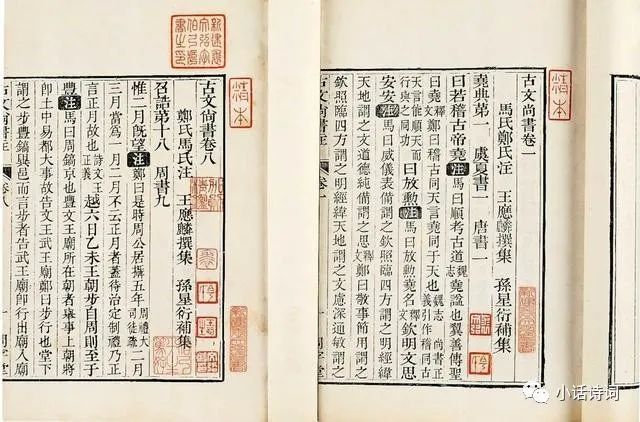 古文尚書卷一
馬氏鄭氏注 王應麟撰集 孫星衍補集
堯典第一 虞夏書一 唐書一
曰若稽古帝堯注馬曰順考古道魏志堯諡也翼善傳聖
曰堯釋文鄭曰稽古同天言堯同于天也魏志 尚書正義引作稽同古
天言能順天而行與之同功曰放勳注馬曰放勳堯名釋文欽明文思
安安注馬曰威儀表備謂之欽照臨四方謂之明經緯
天地謂之文道德純備謂之思釋文鄭曰敬事節用謂之
欽照臨四方謂之明經緯天地謂之文慮深通敏謂之
古文尚書注 卷一
古文尚書卷八
鄭氏馬氏注 王應麟撰集 孫星衍補集
召誥第十八 周書九
惟二月既望注鄭曰是時周公居攝五年周禮大司徒疏二月
三月當為一月二月不云正月者蓋待治定制禮乃正
言正月故也詩文王正義越六日乙未王朝步自周則至于
豐注馬曰周鎬京也豐文王廟所在朝者舉事上朝將
即土中易都大事故告文王武王廟鄭曰步行也堂下
謂之步豐鎬異邑而言步者告武王廟即行出廟入廟
古文尚書注 卷八
小话诗词